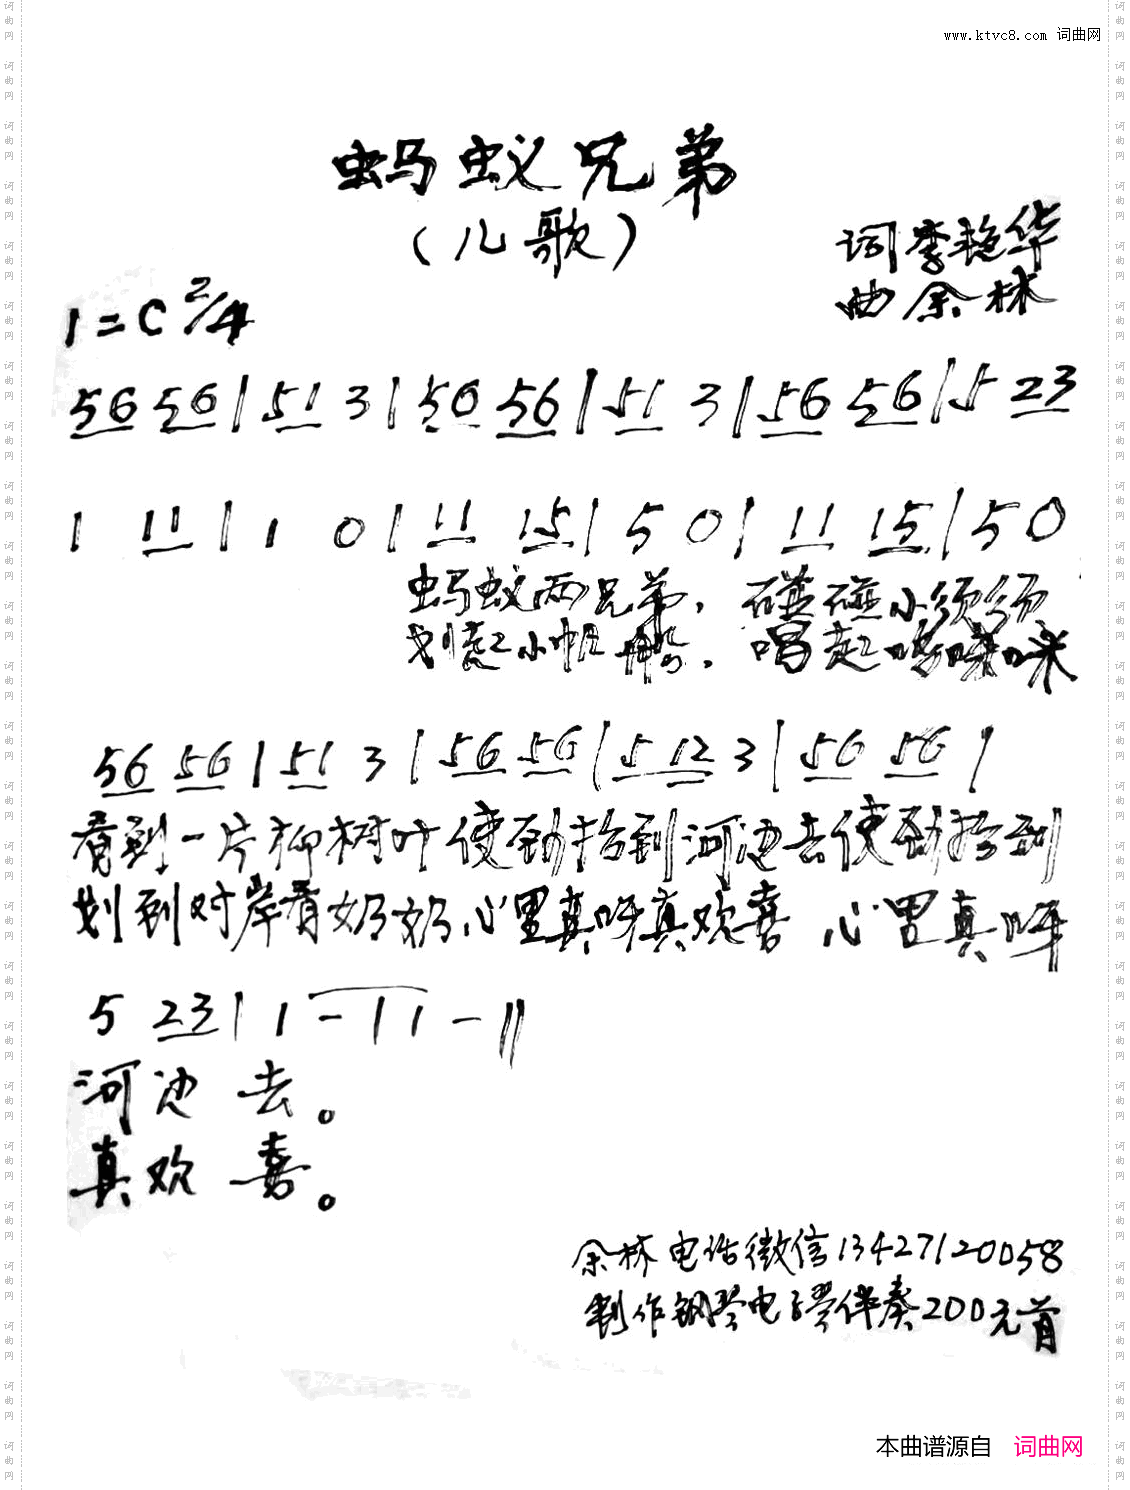 www.ktvc8.com 词曲网
蚂蚁兄弟
(儿歌)
词李艳华
曲余林
1=C 2/4
56 56 | 51 3 | 56 56 | 51 3 | 56 56 | 5 23
1 11 | 1 0 | 11 15 | 5 0 | 11 15 | 5 0
蚂蚁两兄弟，碰碰小须须
划起小帆船，唱起哆咪咪
56 56 | 51 3 | 56 56 | 5 12 3 | 56 56 |
看到一片柳树叶使劲抬到河边去使劲抬到
划到对岸看奶奶，心里真呀真欢喜 心里真呀
5 23 | 1 - | 1 - ||
河边去。
真欢喜。
余林电话微信13427120058
制作钢琴电子琴伴奏200元首
本曲谱源自 词曲网